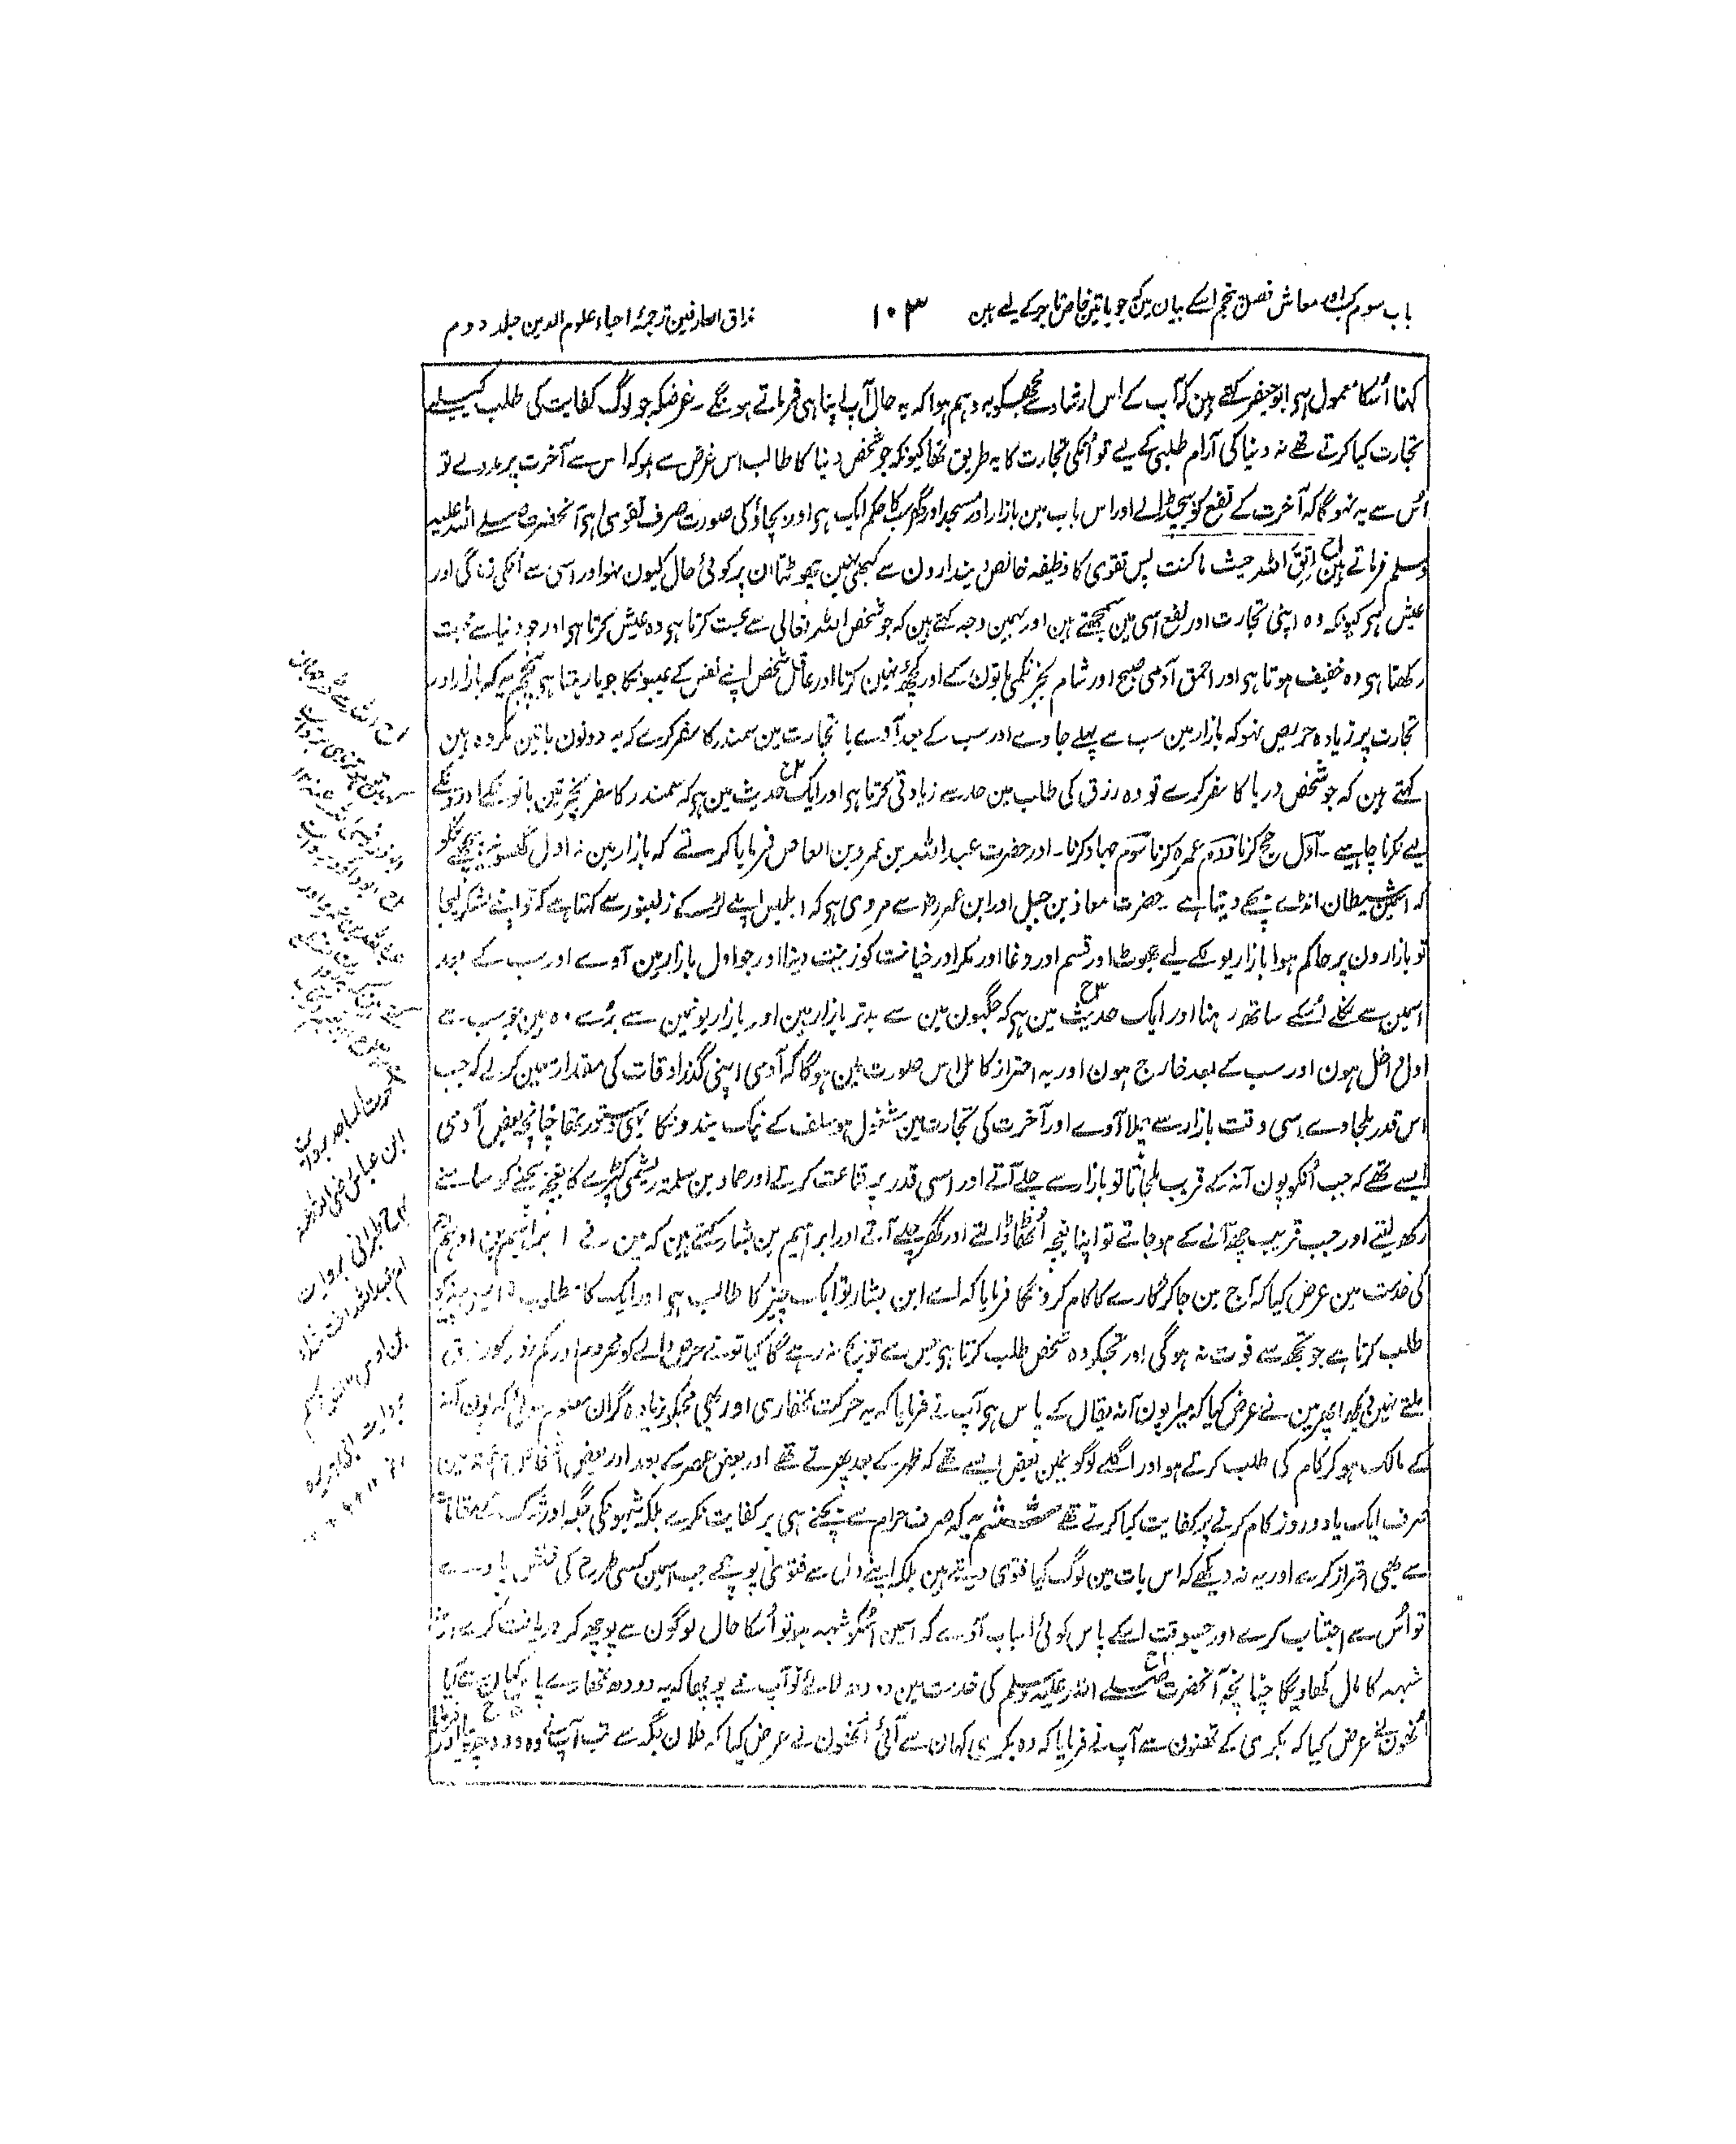 باب سوم کسب اور معاش فصل پنجم اسکے بیان مین کہ جو باتین خاص تاجر کے لیے ہین
۱۰۳
مذاق العارفین ترجمۂ احیاء علوم الدین جلد دوم
کہنا اُسکا معمول ہی ابوجعفر کہتے ہین کہ آپ کے اس ارشاد سے مجھکو یہ وہم ہوا کہ یہ حال آپ اپنا ہی فرماتے ہونگے ۔ غرضکہ جو لوگ کفایت کی طلب کیلیے
تجارت کیا کرتے تھے نہ دنیا کی آرام طلبی کے لیے تو اُنکی تجارت کا یہ طریق تھا کیونکہ جو شخص دنیا کا طالب اس غرض سے ہو کہ اس سے آخرت پر مدد لے تو
اُس سے یہ نہوگا کہ آخرت کے نفع کو چھوڑ دے اور اس باب مین بازار اور مسجد اور گھر سبکا حکم ایک ہی اور بچاؤ کی صورت صرف تقوی ہی آنحضرت صلے اللہ علیہ
وسلم فرماتے ہین اتق اللہ حیث ما کنت پس تقوی کا وظیفہ خالص دیندارون سے کبھی نہین چھوٹتا ان پر کوئی حال کیون نہو اور اسی سے اُنکی زندگی اور
عیش ہی کیونکہ وہ اپنی تجارت اور نفع اسی مین سمجھتے ہین اور ہمین وجہ کہتے ہین کہ جو شخص اللہ تعالی سے محبت کرتا ہی وہ عیش کرتا ہی اور جو دنیا سے محبت
رکھتا ہی وہ خفیف ہوتا ہی اور احمق آدمی صبح اور شام بجز نکمی باتون کے اور کچھ نہین کرتا اور عاقل شخص اپنے نفس کے عیبونکا جویا رہتا ہی پنجم یہ کہ بازار اور
تجارت پر زیادہ حریص نہو کہ بازار مین سب سے پہلے جاوے اور سب کے بعد آوے یا تجارت مین سمندر کا سفر کرے کہ یہ دونون باتین مکروہ ہین
کہتے ہین کہ جو شخص دریا کا سفر کرے تو وہ رزق کی طلب مین حد سے زیادتی کرتا ہی اور ایک حدیث مین ہی کہ سمندر کا سفر بجز تین باتونکے اور ونکے
لیے نکرنا چاہیے ۔ اول حج کرنا دوم عمرہ کرنا سوم جہاد کرنا ۔ اور حضرت عبداللہ بن عمرو بن العاص فرمایا کرتے کہ بازار مین نہ اول گھسو نہ پیچھے نکلو
کہ اسمین شیطان انڈے بچے دیتا ہے ۔ حضرت معاذ بن جبل اور ابن عمر رض سے مروی ہی کہ ابلیس اپنے لڑکے زلنبور سے کہتا ہے کہ تو اپنے لشکر لیجا
تو بازارون پر حاکم ہوا بازاریونکے لیے جھوٹ اور قسم اور دغا اور مکر اور خیانت کو زینت دینا اور جو اول بازار مین آوے اور سب کے بعد
اسمین سے نکلے اُسکے ساتھ رہنا اور ایک حدیث مین ہی کہ جگہون مین سے بدتر بازار ہین اور بازاریونمین سے بُرے وہ ہین جو سب سے
اول داخل ہون اور سب کے بعد خارج ہون اور یہ احتراز کامل اس صورت مین ہوگا کہ آدمی اپنی گذراوقات کی مقدار معین کر لے کہ جب
اس قدر ملجاوے اسی وقت بازار سے چلا آوے اور آخرت کی تجارت مین مشغول ہو سلف کے نیک بندونکا یہی دستور تھا چنانچہ بعض آدمی
ایسے تھے کہ جب اُنکو پون آنہ کے قریب ملجاتا تو بازار سے چلے آتے اور اسی قدر پر قناعت کرتے اور حماد بن سلمہ ریشمی کپڑے کا بغچہ بیچنے کو سامنے
رکھ لیتے اور جب قریب چھ آنے کے ہو جاتے تو اپنا بغچہ اُٹھا ڈالتے اور گھر چلے آتے اور ابراہیم بن بشار کہتے ہین کہ مین نے ابراہیم بن ادہم
کی خدمت مین عرض کیا کہ آج مین جا کر گارے کا کام کرونگا فرمایا کہ اے ابن بشار تو ایک چیز کا طالب ہی اور ایک کا مطلوب
طلب کرتا ہے جو تجھ سے فوت نہ ہوگی اور تجھکو وہ شخص طلب کرتا ہی جس سے تو بچ نہ رہے گا کیا تو نے حرص والے کو محروم اور کمزور کو رزق
ملتے نہین دیکھا پھر مین نے عرض کیا کہ میرا پون آنہ بقال کے پاس ہی آپ نے فرمایا کہ یہ حرکت تمھاری اور بھی مجھکو زیادہ گران معلوم ہوئی کہ پون آنہ
کے مالک ہو کر کام کی طلب کرتے ہو اور اگلے لوگونمین بعض ایسے تھے کہ ظہر کے بعد پھرتے تھے اور بعض عصر کے بعد اور بعض اشخاص ہفتہ مین
صرف ایک یا دو روز کام کرنے پر کفایت کیا کرتے تھے ششم یہ کہ صرف حرام سے بچنے ہی پر کفایت نکرے بلکہ شبہونکی جگہ اور شک کے مقامات
سے بھی احتراز کرے اور یہ نہ دیکھے کہ اس بات مین لوگ کیا فتوی دیتے ہین بلکہ اپنے دل سے فتوی پوچھے جب اسمین کسی طرح کی خلش پاوے
تو اُس سے اجتناب کرے اور جسوقت اسکے پاس کوئی اسباب آوے کہ اسمین اُسکو شبہہ ہو تو اُسکا حال لوگون سے پوچھ کر دریافت کرے ورنہ
شبہہ کا مال کھاویگا چنانچہ آنحضرت صلے اللہ علیہ وسلم کی خدمت مین دودھ لائے تو آپ نے پوچھا کہ یہ دودھ تمھارے پاس کہان سے آیا
اُنھون نے عرض کیا کہ بکری کے تھنون سے آپ نے فرمایا کہ وہ بکری کہان سے آئی اُنھون نے عرض کیا کہ فلان جگہ سے تب آپنے وہ دودھ پیا اور
ابن عباس رضی اللہ عنہ
طبرانی بروایت
ام عبداللہ اخت شداد
بن اوس